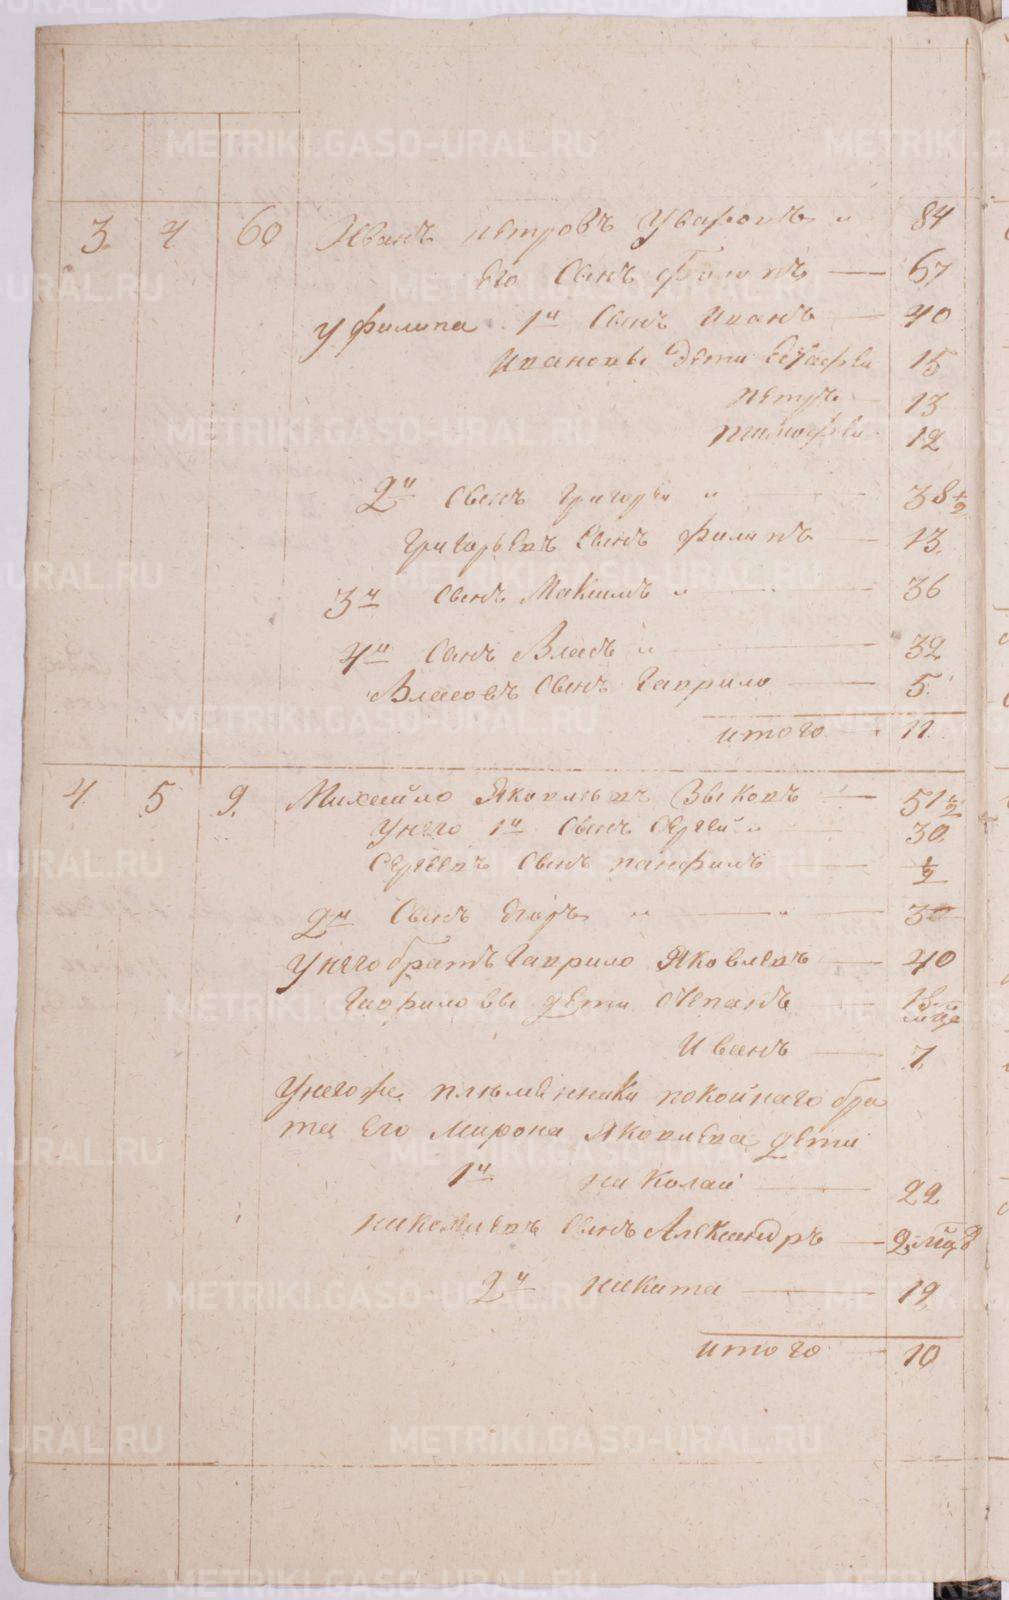 METRIKI.GASO-URAL.RU
3. 4 60 Иванъ петровъ Уваровъ „ 84
Его Сынъ Филипъ — 67
У филипа 1й Сынъ Иванъ — 40
Ивановы дети Естафеи 15
петръ — 13
тимофеи 12
2й сынъ григореи „ 38 1/2
григорьевъ Сынъ филипъ — 13.
3й сынъ Максимъ „ — 36
4й Сынъ Власъ „ — 32
Власовъ Сынъ гаврило — 5.
итого — 11
4. 5 9. Михайло Яковлевъ Зыковъ — 51 1/2
Унего 1й Сынъ Сергей „ 30.
Сергеевъ Сынъ панфилъ — 1/2
2й Сынъ Егоръ „ — „ — 30
Унего братъ гаврило Яковлевъ — 40
гавриловы дети степанъ —
Иванъ — 7.
Унегоже племенники покойнаго бра
та Его Мирона Яковлева дети
1й николай — 22
николаевъ сынъ Александръ — 2. мца
2й никита — 19.
итого — 10